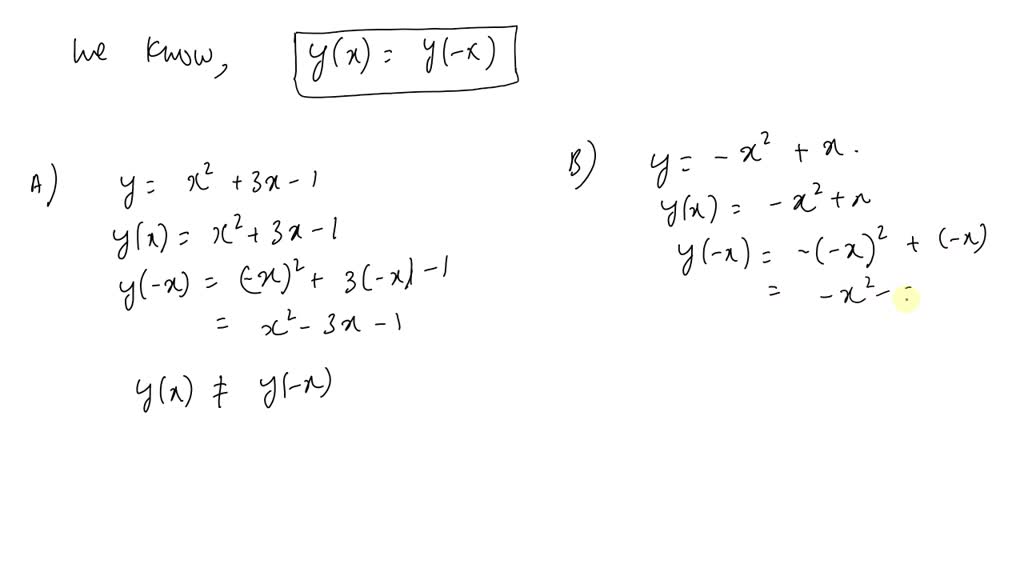 We know, y(x) = y(-x)
A) y = x² + 3x - 1
y(x) = x² + 3x - 1
y(-x) = (-x)² + 3(-x) - 1
= x² - 3x - 1
y(x) ≠ y(-x)
B) y = -x² + x.
y(x) = -x² + x
y(-x) = -(-x)² + (-x)
= -x² -